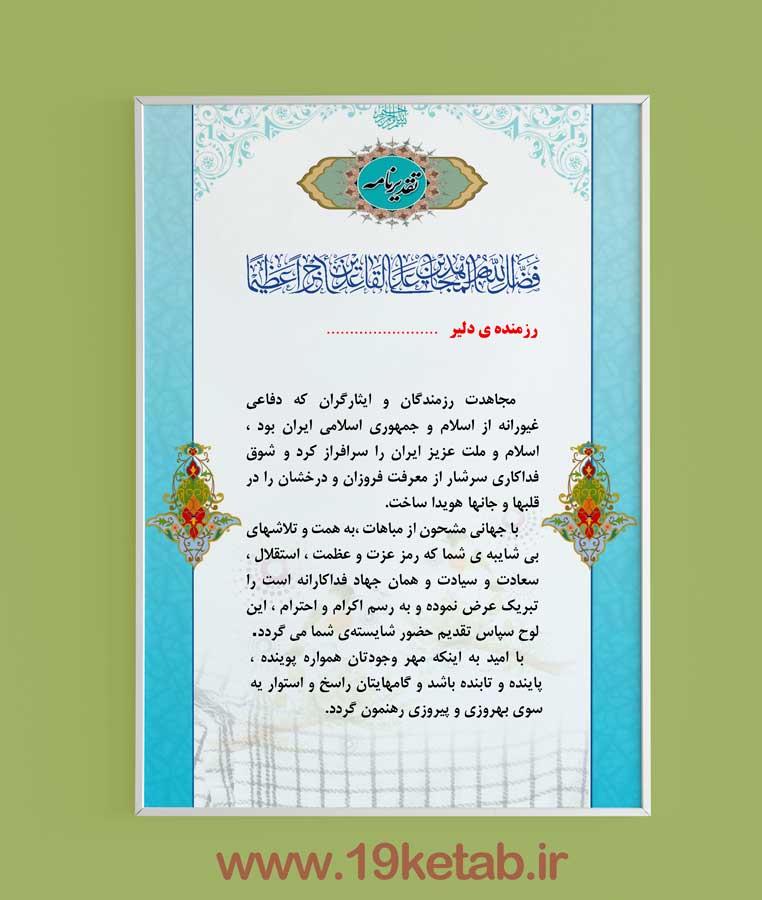 بسم الله الرحمن الرحیم
تقدیرنامه
فضل الله المجاهدین علی القاعدین أجراً عظیماً
رزمنده ی دلیر ........................
مجاهدت رزمندگان و ایثارگران که دفاعی
غیورانه از اسلام و جمهوری اسلامی ایران بود ،
اسلام و ملت عزیز ایران را سرافراز کرد و شوق
فداکاری سرشار از معرفت فروزان و درخشان را در
قلبها و جانها هویدا ساخت.
با جهانی مشحون از مباهات ،به همت و تلاشهای
بی شایبه ی شما که رمز عزت و عظمت ، استقلال ،
سعادت و سیادت و همان جهاد فداکارانه است را
تبریک عرض نموده و به رسم اکرام و احترام ، این
لوح سپاس تقدیم حضور شایسته‌ی شما می گردد.
با امید به اینکه مهر وجودتان همواره پوینده ،
پاینده و تابنده باشد و گامهایتان راسخ و استوار یه
سوی بهروزی و پیروزی رهنمون گردد.
www.19ketab.ir